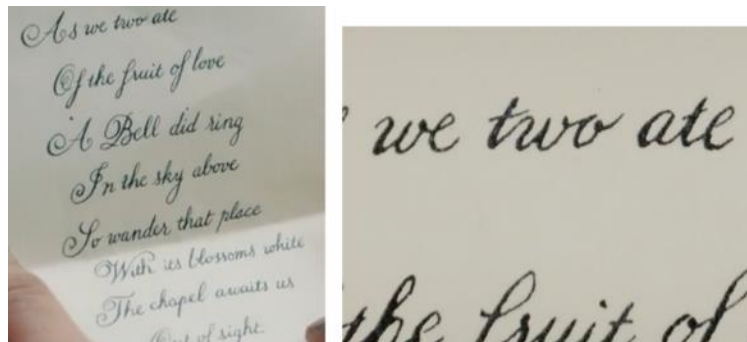 As we two ate
Of the fruit of love
A Bell did ring
In the sky above
So wander that place
With its blossoms white
The chapel awaits us
Out of sight.
we two ate
the fruit of